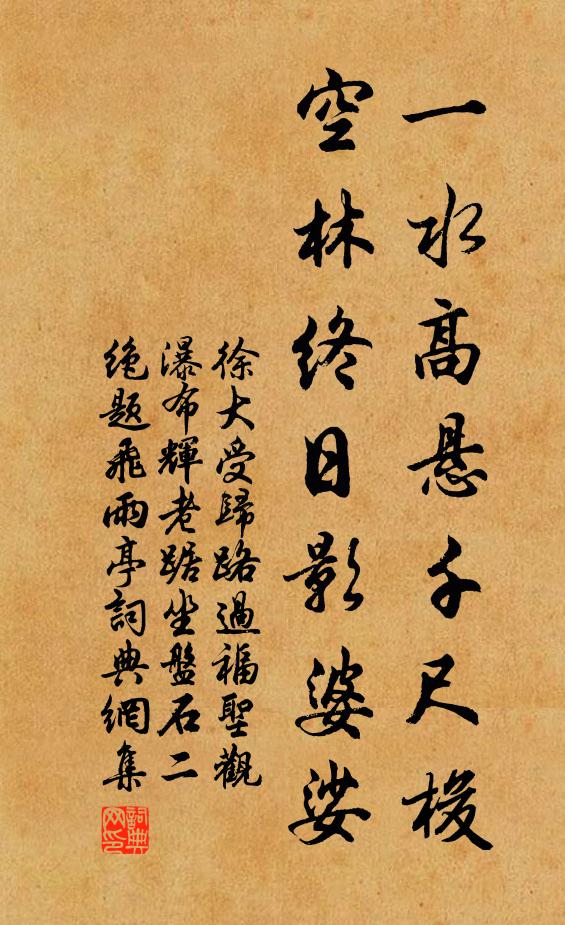 一水高悬千尺梭
空林终日影婆娑
徐大受歸路過福聖觀
瀑布輝老踞坐盤石二
绝题飛雨亭詞典網集
詞典
网印